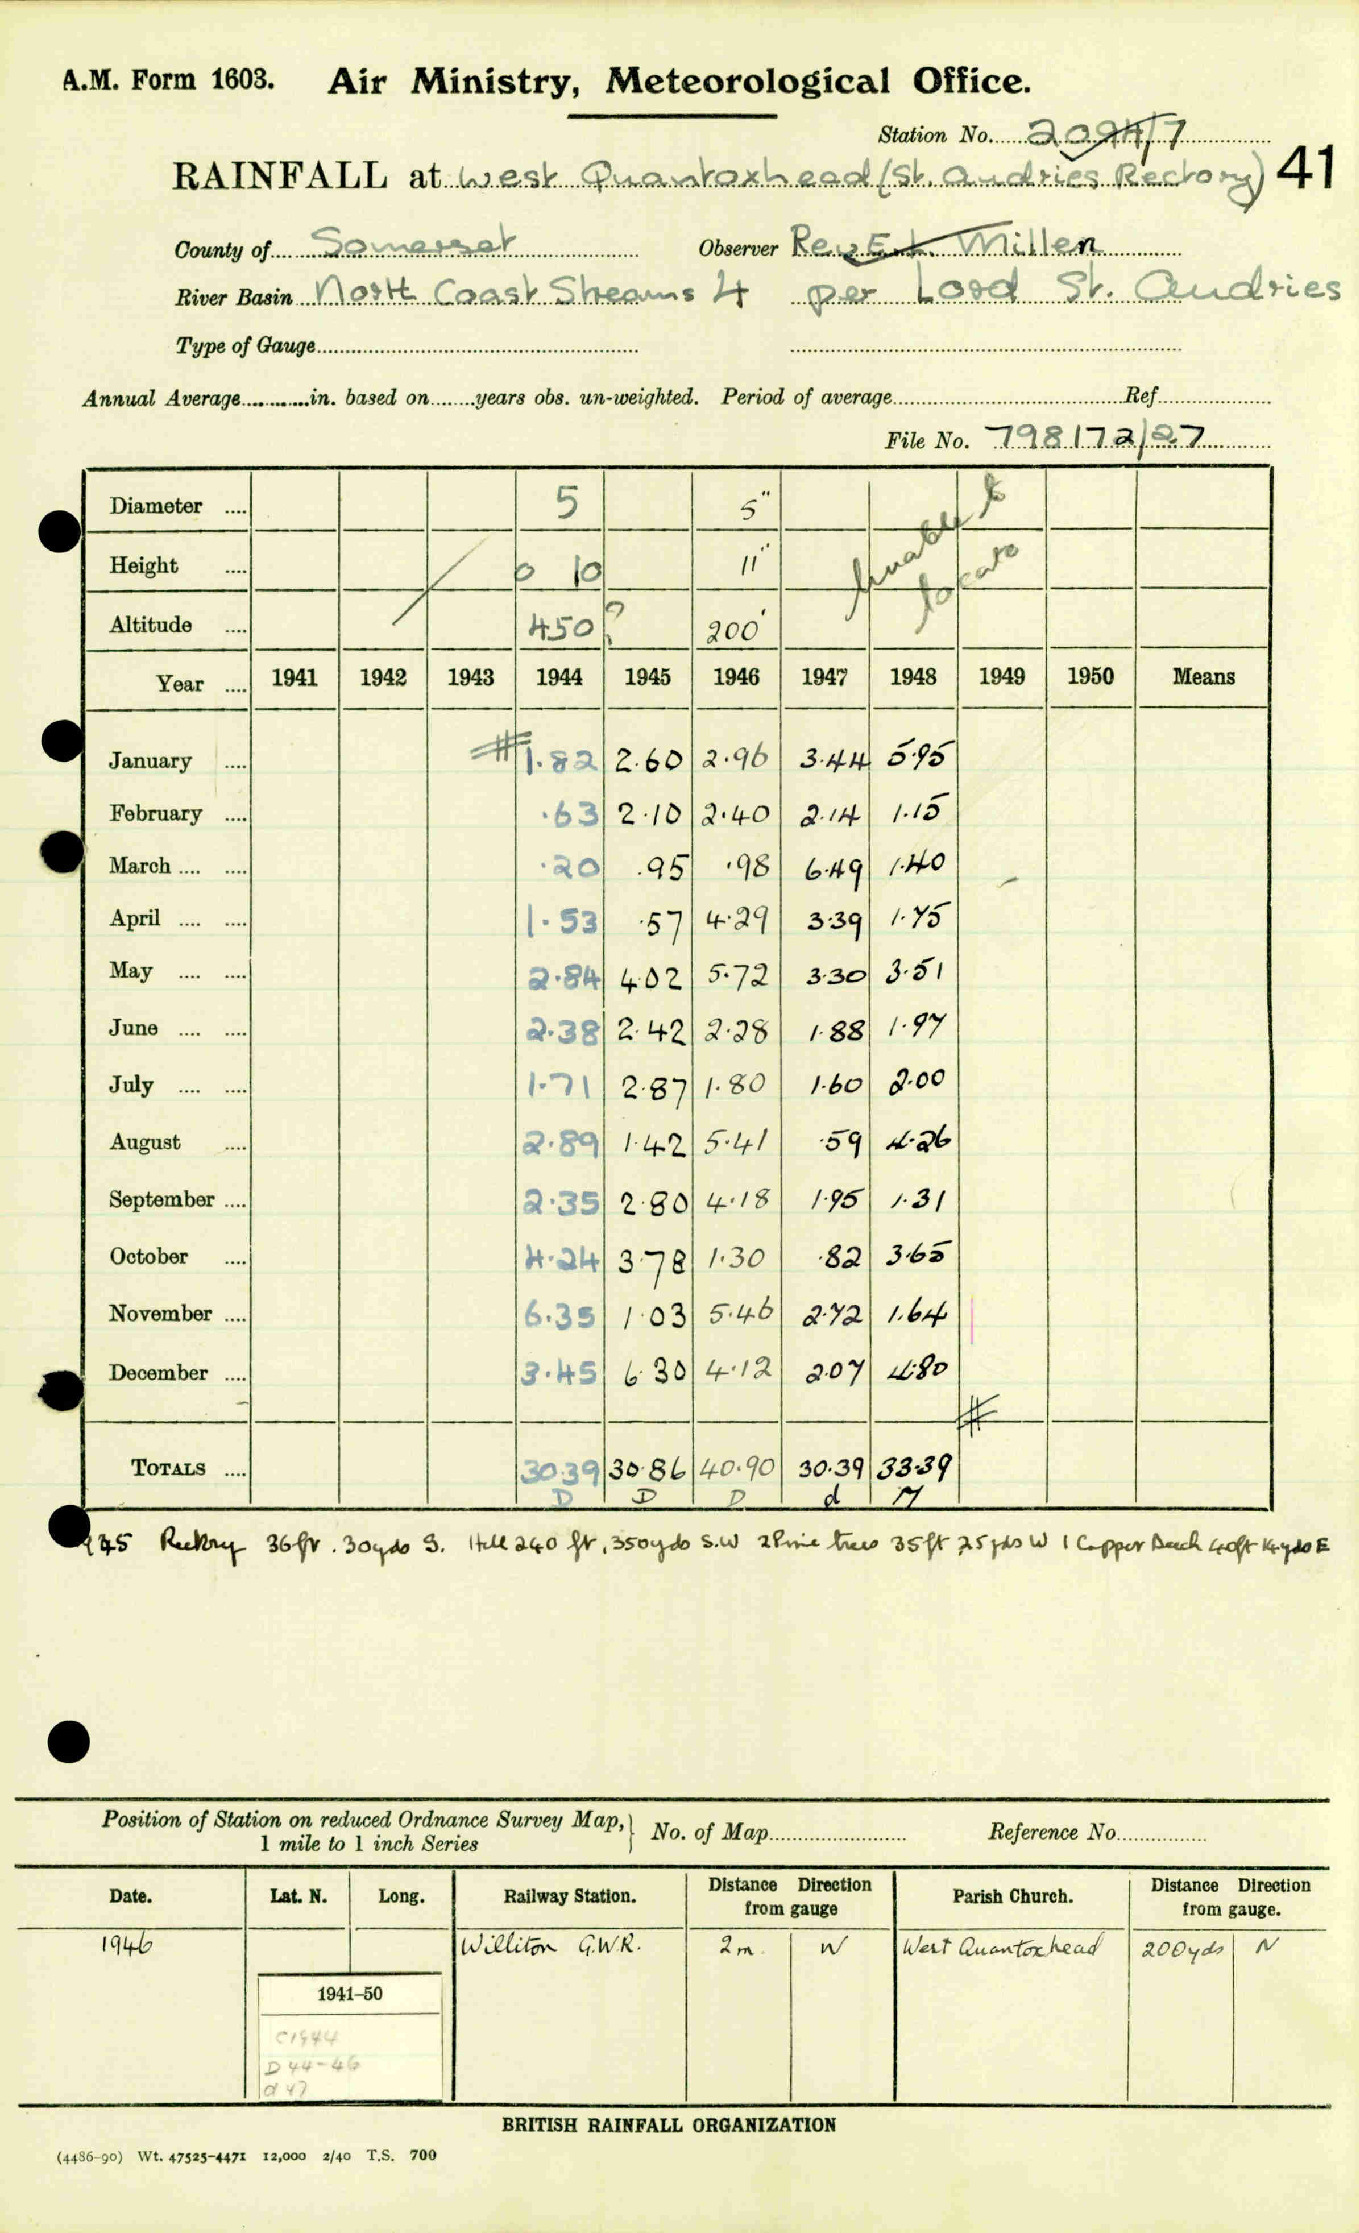 A.M. Form 1603. Air Ministry, Meteorological Office.
Station No. 2094/7
RAINFALL at West Quantoxhead (St. Audries Rectory) 41
County of Somerset Observer Rev E. L. Millen
River Basin North Coast Streams 4 per Lord St. Audries
Type of Gauge
Annual Average in. based on years obs. un-weighted. Period of average Ref
File No. 798172/27
Diameter .... 5 5" Unable to
Height .... 0 10 11" locate
Altitude .... 450? 200'
Year .... 1941 1942 1943 1944 1945 1946 1947 1948 1949 1950 Means
January .... 1.82 2.60 2.96 3.44 5.95
February .... .63 2.10 2.40 2.14 1.15
March .... .... .20 .95 .98 6.49 1.40
April .... .... 1.53 .57 4.29 3.39 1.75
May .... .... 2.84 4.02 5.72 3.30 3.51
June .... .... 2.38 2.42 2.28 1.88 1.97
July .... .... 1.71 2.87 1.80 1.60 2.00
August .... 2.89 1.42 5.41 .59 4.26
September .... 2.35 2.80 4.18 1.95 1.31
October .... 4.24 3.78 1.30 .82 3.65
November .... 6.35 1.03 5.46 2.72 1.64
December .... 3.45 6.30 4.12 2.07 4.80
TOTALS .... 30.39 30.86 40.90 30.39 33.39
D D D d M
Rectory 36 ft. 30 yds S. Hill 240 ft, 350 yds S.W 2 Pine trees 35 ft 25 yds W 1 Copper Beech 40ft 14 yds E
Position of Station on reduced Ordnance Survey Map, 1 mile to 1 inch Series No. of Map Reference No.
Date. Lat. N. Long. Railway Station. Distance Direction from gauge Parish Church. Distance Direction from gauge.
1946 Williton G.W.R. 2 m. W West Quantoxhead 200 yds N
1941–50
C 1944
D 44-46
d 47
BRITISH RAINFALL ORGANIZATION
(4486-90) Wt. 47525-4471 12,000 2/40 T.S. 700